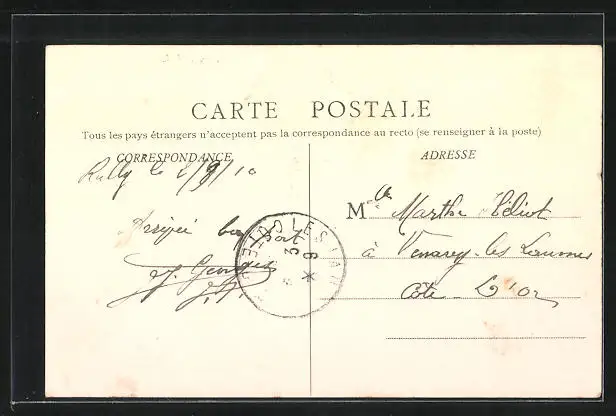 CARTE POSTALE
Tous les pays étrangers n'acceptent pas la correspondance au recto (se renseigner à la poste)
CORRESPONDANCE
ADRESSE
Rully le 2/9/10
Arrivée bon port
J. Georges
Mlle Marthe Héliot
à Venarey-les-Laumes
Côte-D'Or
LES LAU
3
9